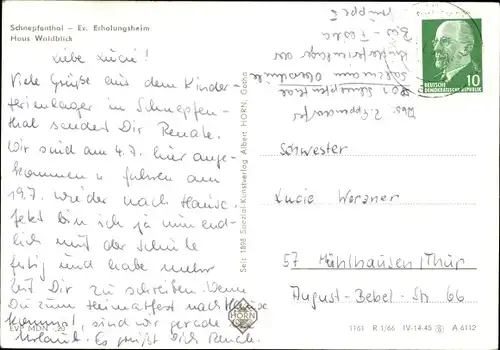 Schnepfenthal – Ev. Erholungsheim
Haus Waldblick
Liebe Lucie!
Viele Grüße aus dem Kinder-
ferienlager in Schnepfen-
thal sendet Dir Renate.
Wir sind am 4.7. hier ange-
kommen u. fahren am
19.7. wieder nach Hause.
Jetzt bin ich ja nun end-
lich mit der Schule
fertig und habe mehr
Zeit Dir zu schreiben. Wenn
Du zum Heimatfest nach Hause
kommst, sind wir gerade
Urlaub. Es grüßt Dich Renate.
EVP MDN -,20
Seit 1898 Spezial-Kunstverlag Albert HORN, Gotha
HORN
Kinderferienlager der
Schnepfenthal
DEUTSCHE
DEMOKRATISCHE REPUBLIK
10
Schwester
Lucie
57 Mühlhausen/Thür
August-Bebel-Str 66
1161 R 1/66 IV-14-45 A 6112